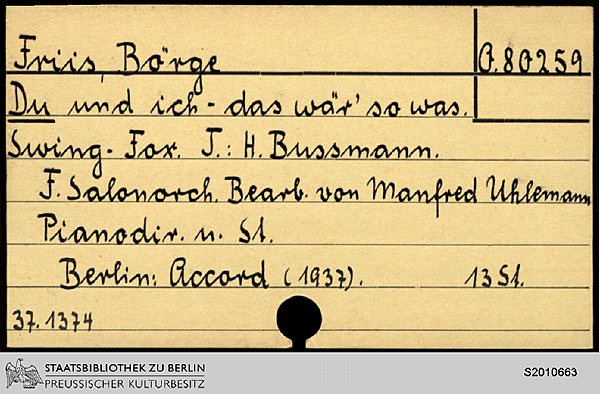 Friis, Börge
O. 80259
Du und ich - das wär' so was.
Swing-Fox. T.: H. Bussmann.
F. Salonorch. Bearb. von Manfred Uhlemann
Pianodir. u. St.
Berlin: Accord (1937). 13 St.
37.1374
STAATSBIBLIOTHEK ZU BERLIN
PREUSSISCHER KULTURBESITZ
S2010663